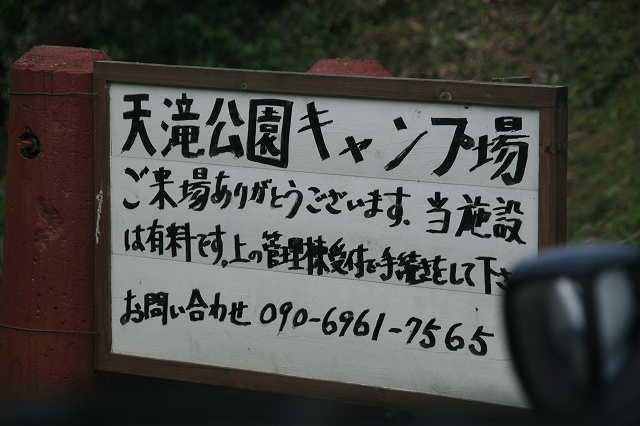 天滝公園キャンプ場
ご来場ありがとうございます、当施設
は有料です。上の管理棟受付で手続きをして下さ
お問い合わせ 090-6961-7565